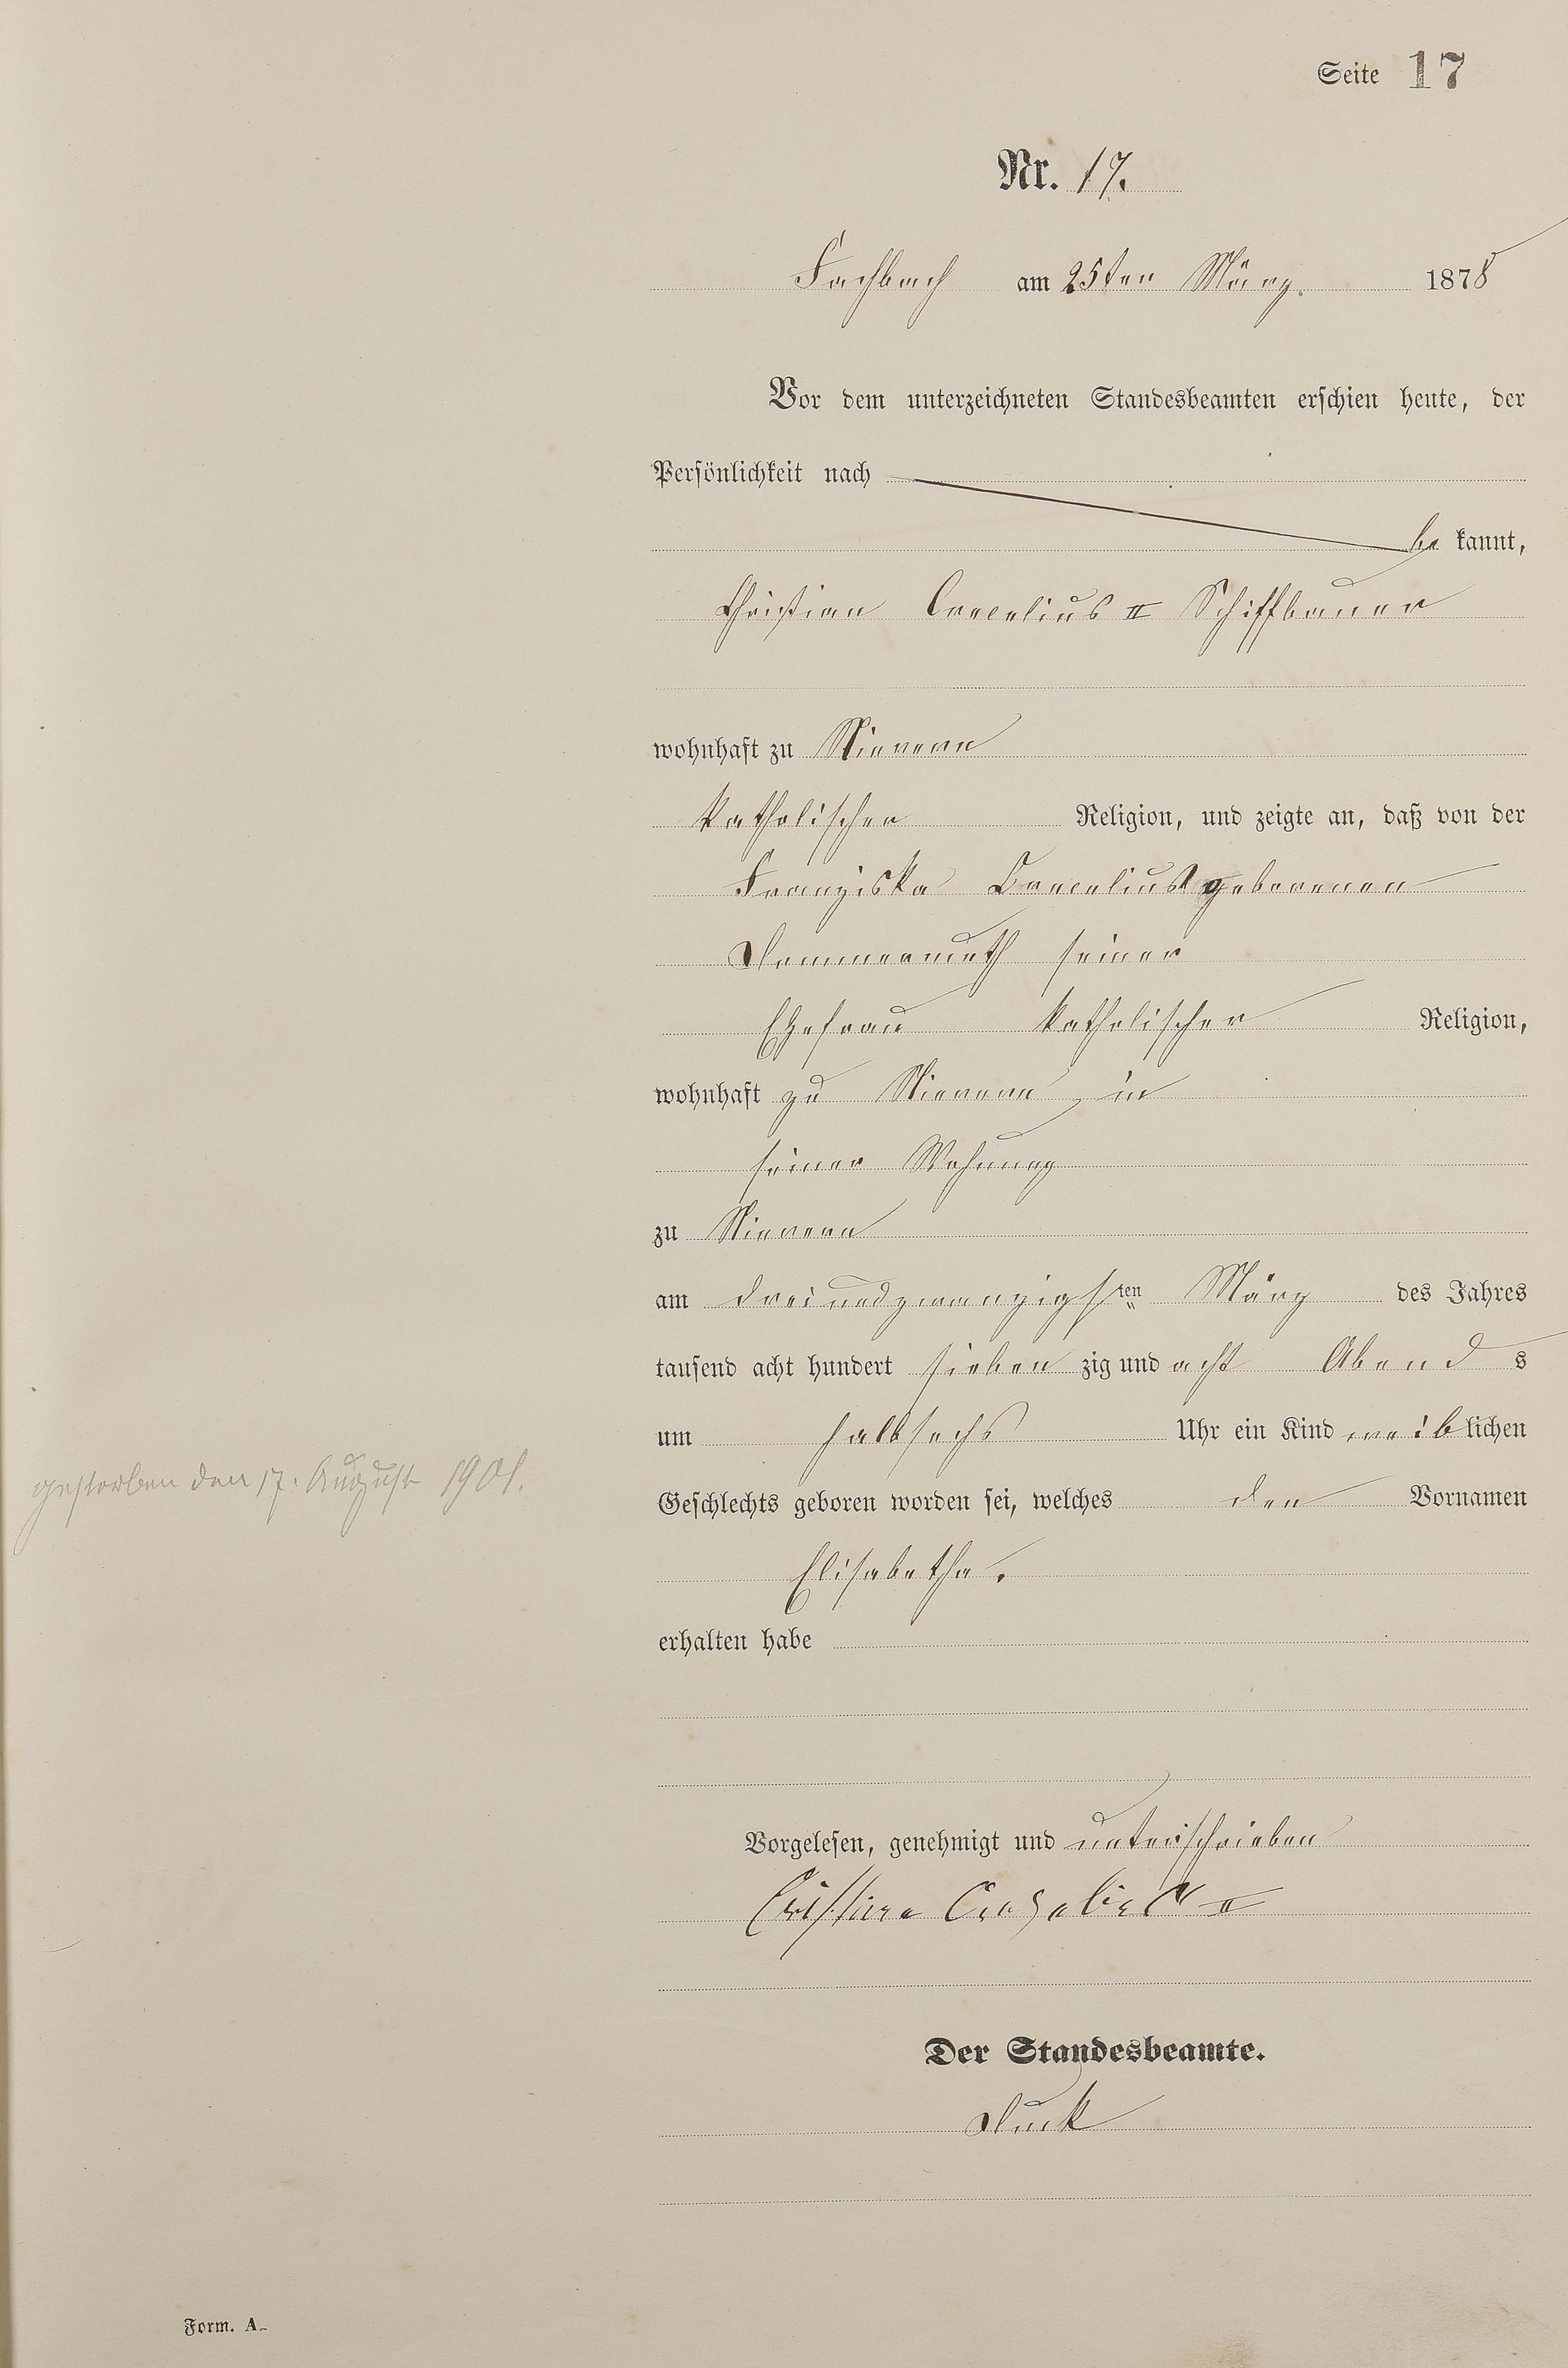 Seite 17
Nr. 17.
Fachbach am 25ten März. 1878
Vor dem unterzeichneten Standesbeamten erschien heute, der
Persönlichkeit nach
be kannt,
Christian Crecelius II Schiffbauer
wohnhaft zu Nievern
katholischer Religion, und zeigte an, daß von der
Franziska Crecelius geborenen
Dommermuth seiner
Ehefrau katholischer Religion,
wohnhaft zu Nievern, in
seiner Wohnung
zu Nievern
am dreiundzwanzigsten März des Jahres
tausend acht hundert sieben zig und acht Abend s
um halbsechs Uhr ein Kind weiblichen
gestorben den 17. August 1901.
Geschlechts geboren worden sei, welches den Vornamen
Elisabetha.
erhalten habe
Vorgelesen, genehmigt und unterschrieben
II
Der Standesbeamte.
Form. A.